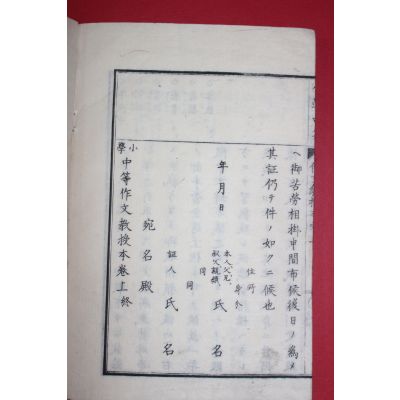 ヘ御苦労相掛申間布候後日ノ為メ
其証仍テ件ノ如クニ候也
住所
身分
年月日
本人父兄
叔父親類
氏名
同
同
証人氏名
宛名殿
小學中等作文教授本卷上終